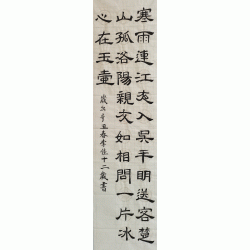 寒雨連江夜入吳平明送客楚
山孤洛陽親友如相問一片冰
心在玉壺
歲次辛丑春李十二歲書